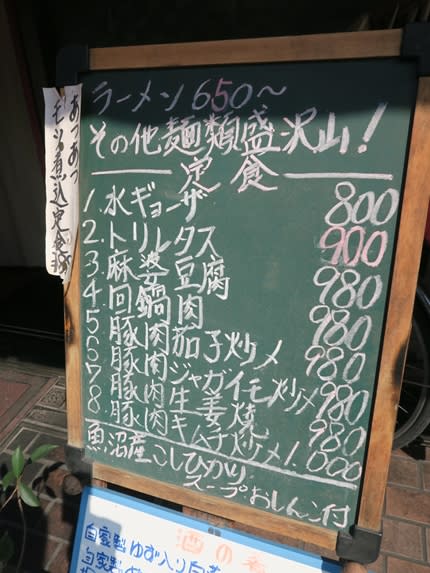 ラーメン650〜
その他麺類盛沢山!
定食
1.水ギョーザ 800
2.トリレタス 900
3.麻婆豆腐 980
4.回鍋肉 980
5.豚肉茄子炒メ 980
6.豚肉ジャガイモ炒メ 980
7.豚肉生姜焼 980
8.豚肉キムチ炒メ 1.000
魚沼産こしひかり
スープおしんこ付
あつあつ
モツ煮込定食
酒の
自家製ゆず入り白
自家製